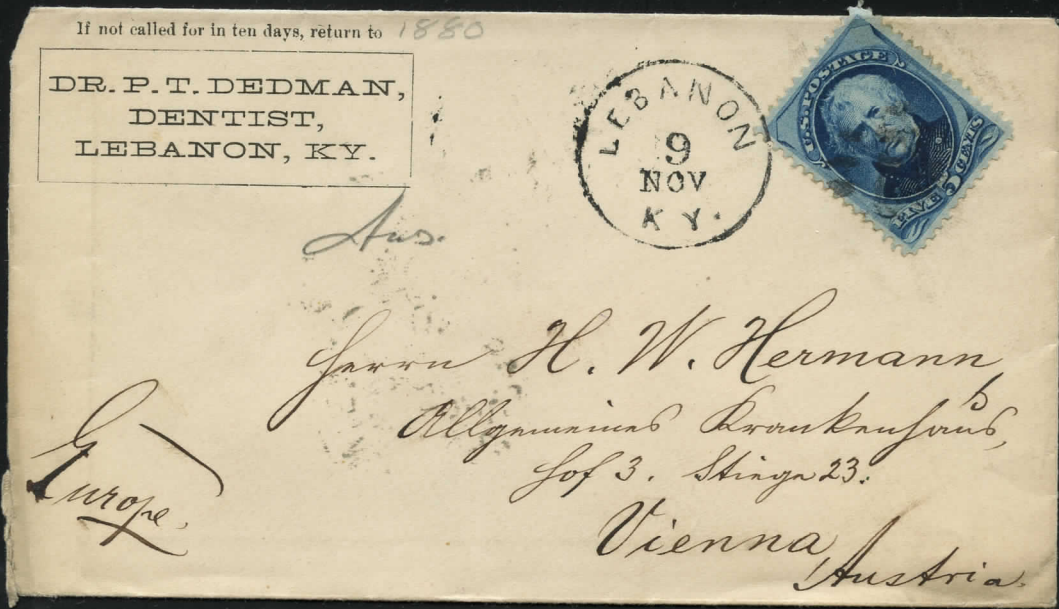 If not called for in ten days, return to 1880
DR. P. T. DEDMAN,
DENTIST,
LEBANON, KY.
LEBANON
9
NOV
KY.
U.S. POSTAGE
FIVE 5 CENTS
Aus.
Herrn H. W. Hermann,
Allgemeines Krankenhaus,
Hof 3. Stiege 23.
Vienna,
Austria.
Europe.